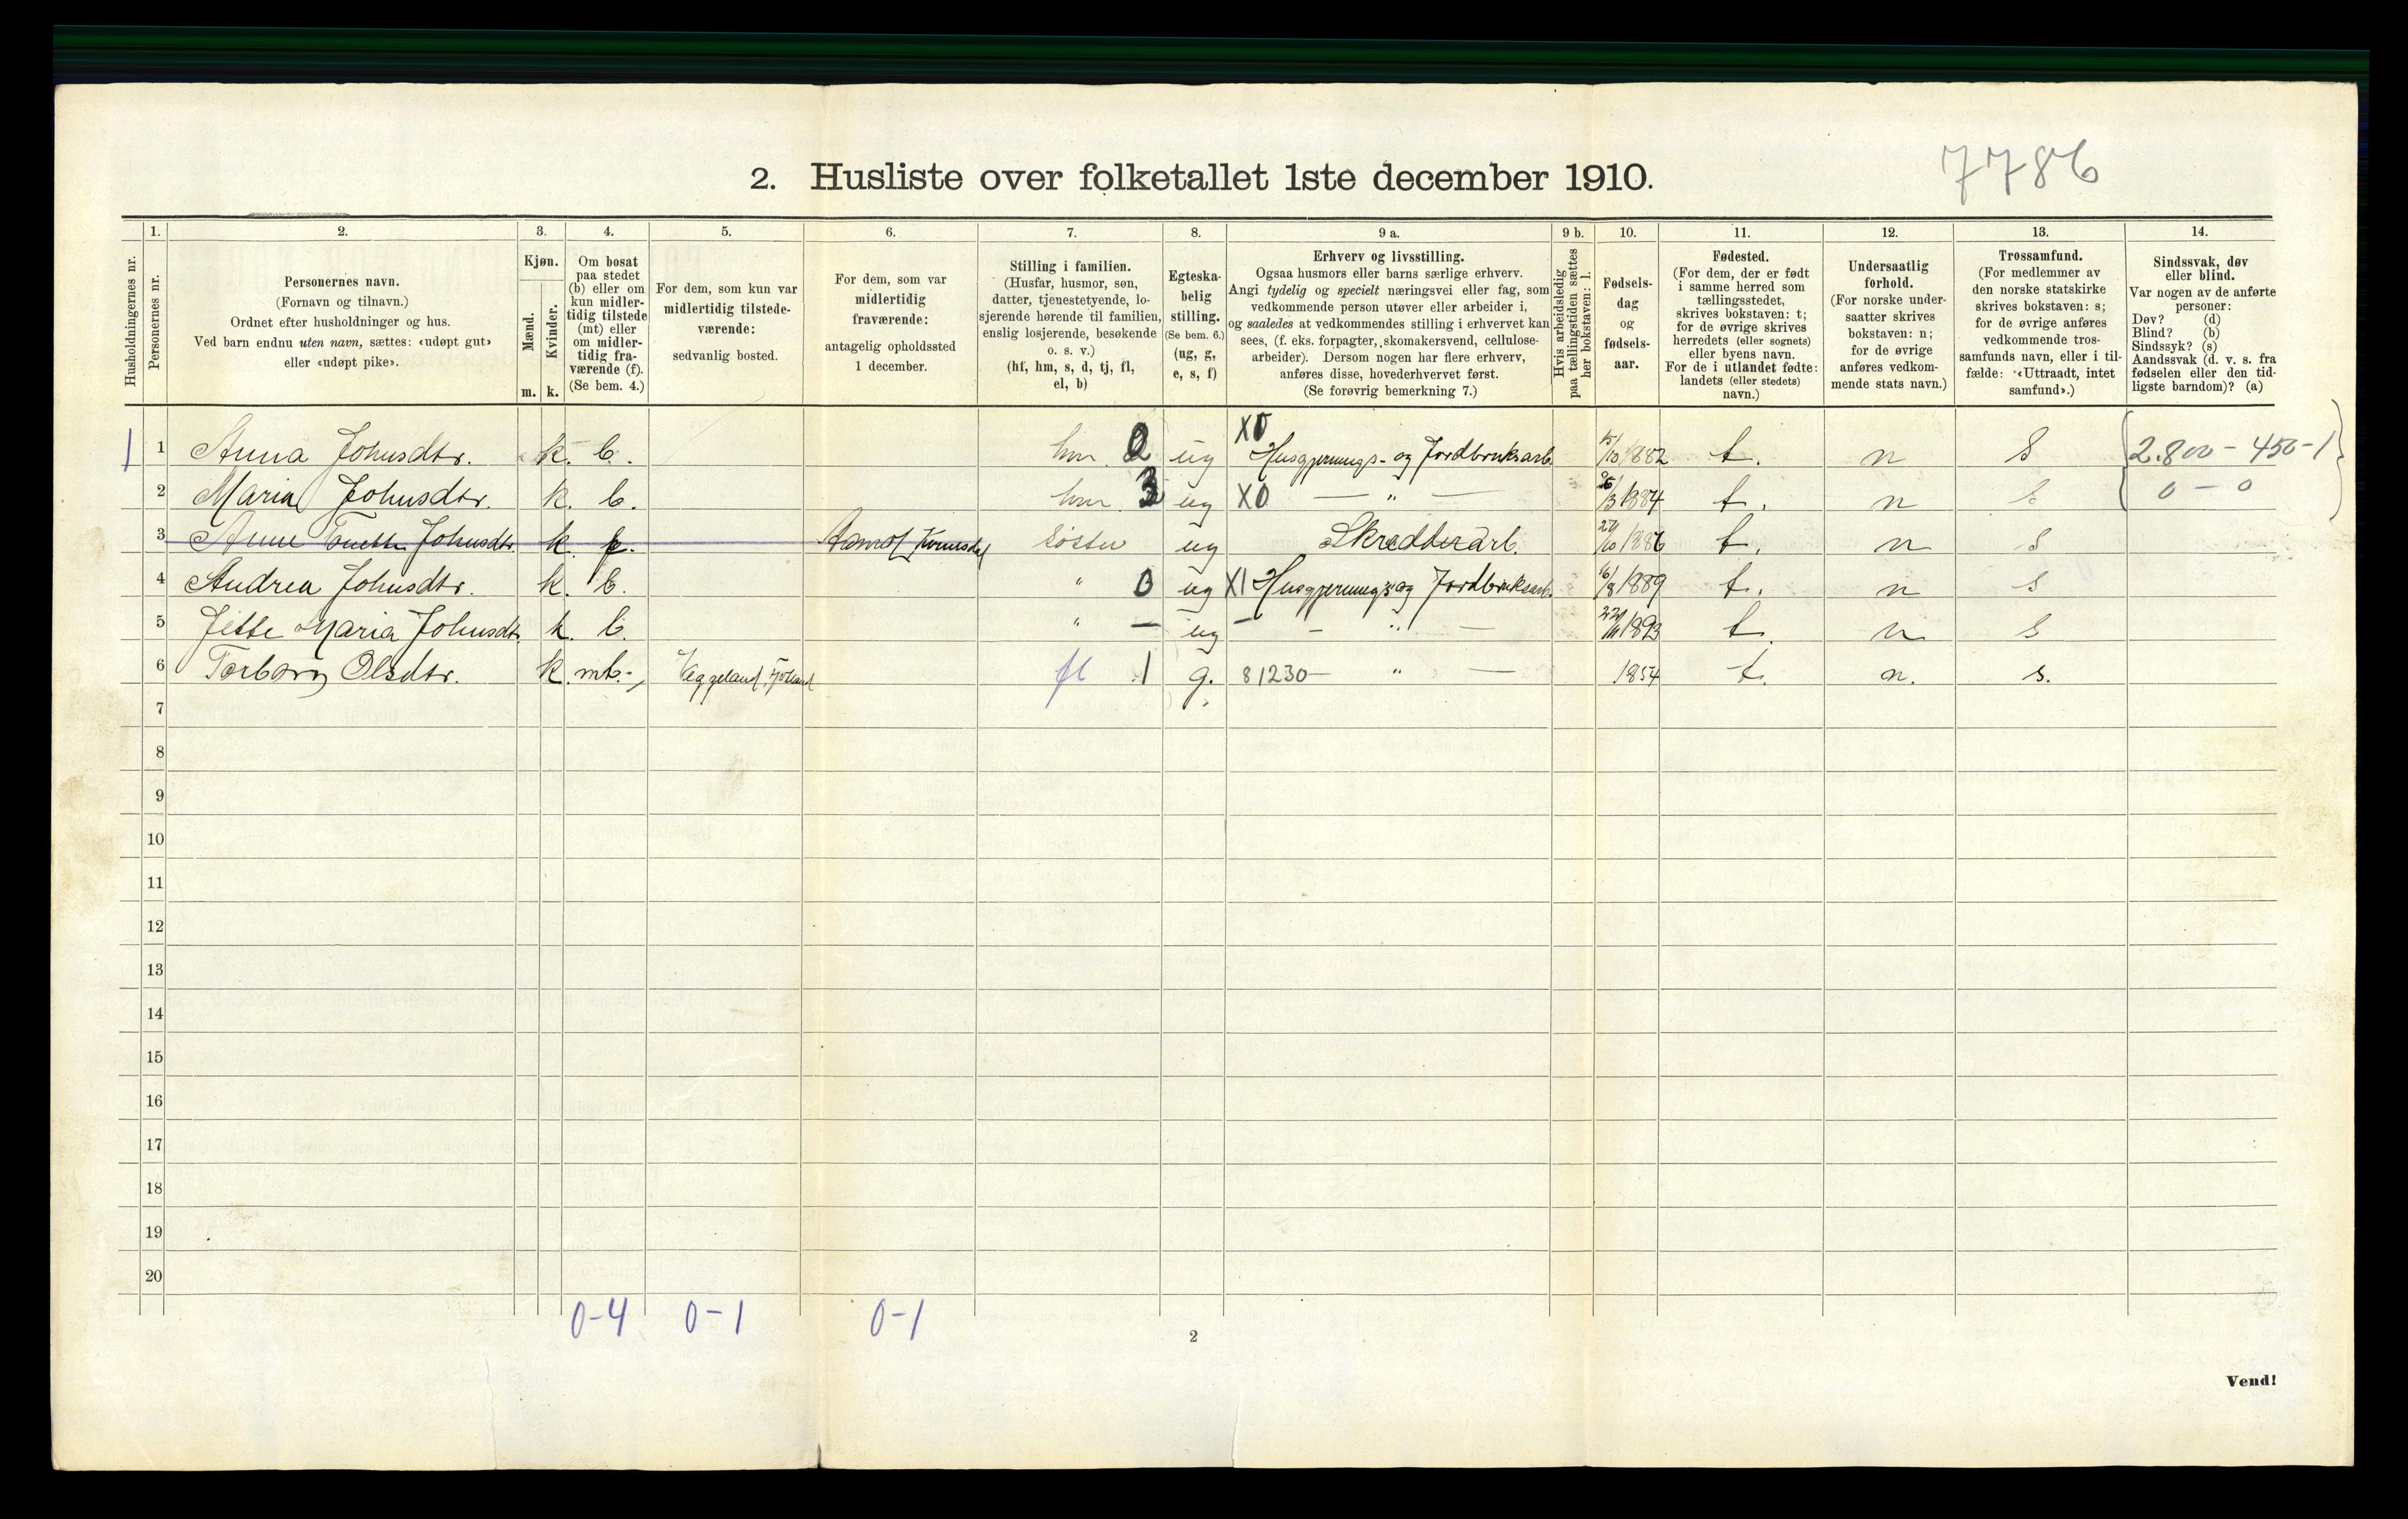 7786
2. Husliste over folketallet 1ste december 1910.
Husholdningernes nr.
1. Personernes nr.
2. Personernes navn. (Fornavn og tilnavn.) Ordnet efter husholdninger og hus. Ved barn endnu uten navn, sættes: «udøpt gut» eller «udøpt pike».
3. Kjøn. Mænd. m. Kvinder. k.
4. Om bosat paa stedet (b) eller om kun midlertidig tilstede (mt) eller om midlertidig fraværende (f). (Se bem. 4.)
5. For dem, som kun var midlertidig tilstedeværende: sedvanlig bosted.
6. For dem, som var midlertidig fraværende: antagelig opholdssted 1 december.
7. Stilling i familien. (Husfar, husmor, søn, datter, tjenestetyende, losjerende hørende til familien, enslig losjerende, besøkende o. s. v.) (hf, hm, s, d, tj, fl, el, b)
8. Egteskabelig stilling. (Se bem. 6.) (ug, g, e, s, f)
9 a. Erhverv og livsstilling. Ogsaa husmors eller barns særlige erhverv. Angi tydelig og specielt næringsvei eller fag, som vedkommende person utøver eller arbeider i, og saaledes at vedkommendes stilling i erhvervet kan sees, (f. eks. forpagter, skomakersvend, cellulosearbeider). Dersom nogen har flere erhverv, anføres disse, hovederhvervet først. (Se forøvrig bemerkning 7.)
9 b. Hvis arbeidsledig paa tællingstiden sættes her bokstaven: l.
10. Fødselsdag og fødselsaar.
11. Fødested. (For dem, der er født i samme herred som tællingsstedet, skrives bokstaven: t; for de øvrige skrives herredets (eller sognets) eller byens navn. For de i utlandet fødte: landets (eller stedets) navn.)
12. Undersaatlig forhold. (For norske undersaatter skrives bokstaven: n; for de øvrige anføres vedkommende stats navn.)
13. Trossamfund. (For medlemmer av den norske statskirke skrives bokstaven: s; for de øvrige anføres vedkommende trossamfunds navn, eller i tilfælde: «Uttraadt, intet samfund».)
14. Sindssvak, døv eller blind. Var nogen av de anførte personer: Døv? (d) Blind? (b) Sindssyk? (s) Aandssvak (d. v. s. fra fødselen eller den tidligste barndom)? (a)
1 1 Anna Johnsdtr. k. b. hm 0 ug X0 Husgjernings- og Jordbruksarb. 15/10 1882 t. n s 2.800 - 450 - 1
2 Maria Johnsdtr. k. b. hm 3 ug X0 — " — /3 1884 t. n s 0 - 0
3 Anne Johnsdtr. k f. søster ug Skredderarb. 27/10 1886 t. n s
4 Andrea Johnsdtr. k. b. " 0 ug X1 Husgjernings og Jordbruksarb. 16/8 1889 t. n s
5 Jette Maria Johnsdtr. k. b. " — ug — — " — 1893 t. n s
6 Torborg Olsdtr. k. mt. Veggeland, fl 1 g. 81230 — " — 1854 t. n. s.
7
8
9
10
11
12
13
14
15
16
17
18
19
20
0-4 0-1 0-1
2
Vend!